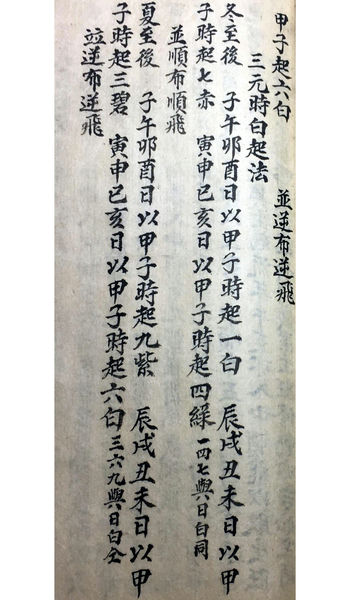 甲子起六白　並逆布逆飛
三元時白起法
冬至後　子午卯酉日以甲子時起一白　辰戌丑未日以甲
子時起七赤　寅申巳亥日以甲子時起四綠一四七與日白同
並順布順飛
夏至後　子午卯酉日以甲子時起九紫　辰戌丑未日以甲
子時起三碧　寅申巳亥日以甲子時起六白三六九與日白仝
竝逆布逆飛